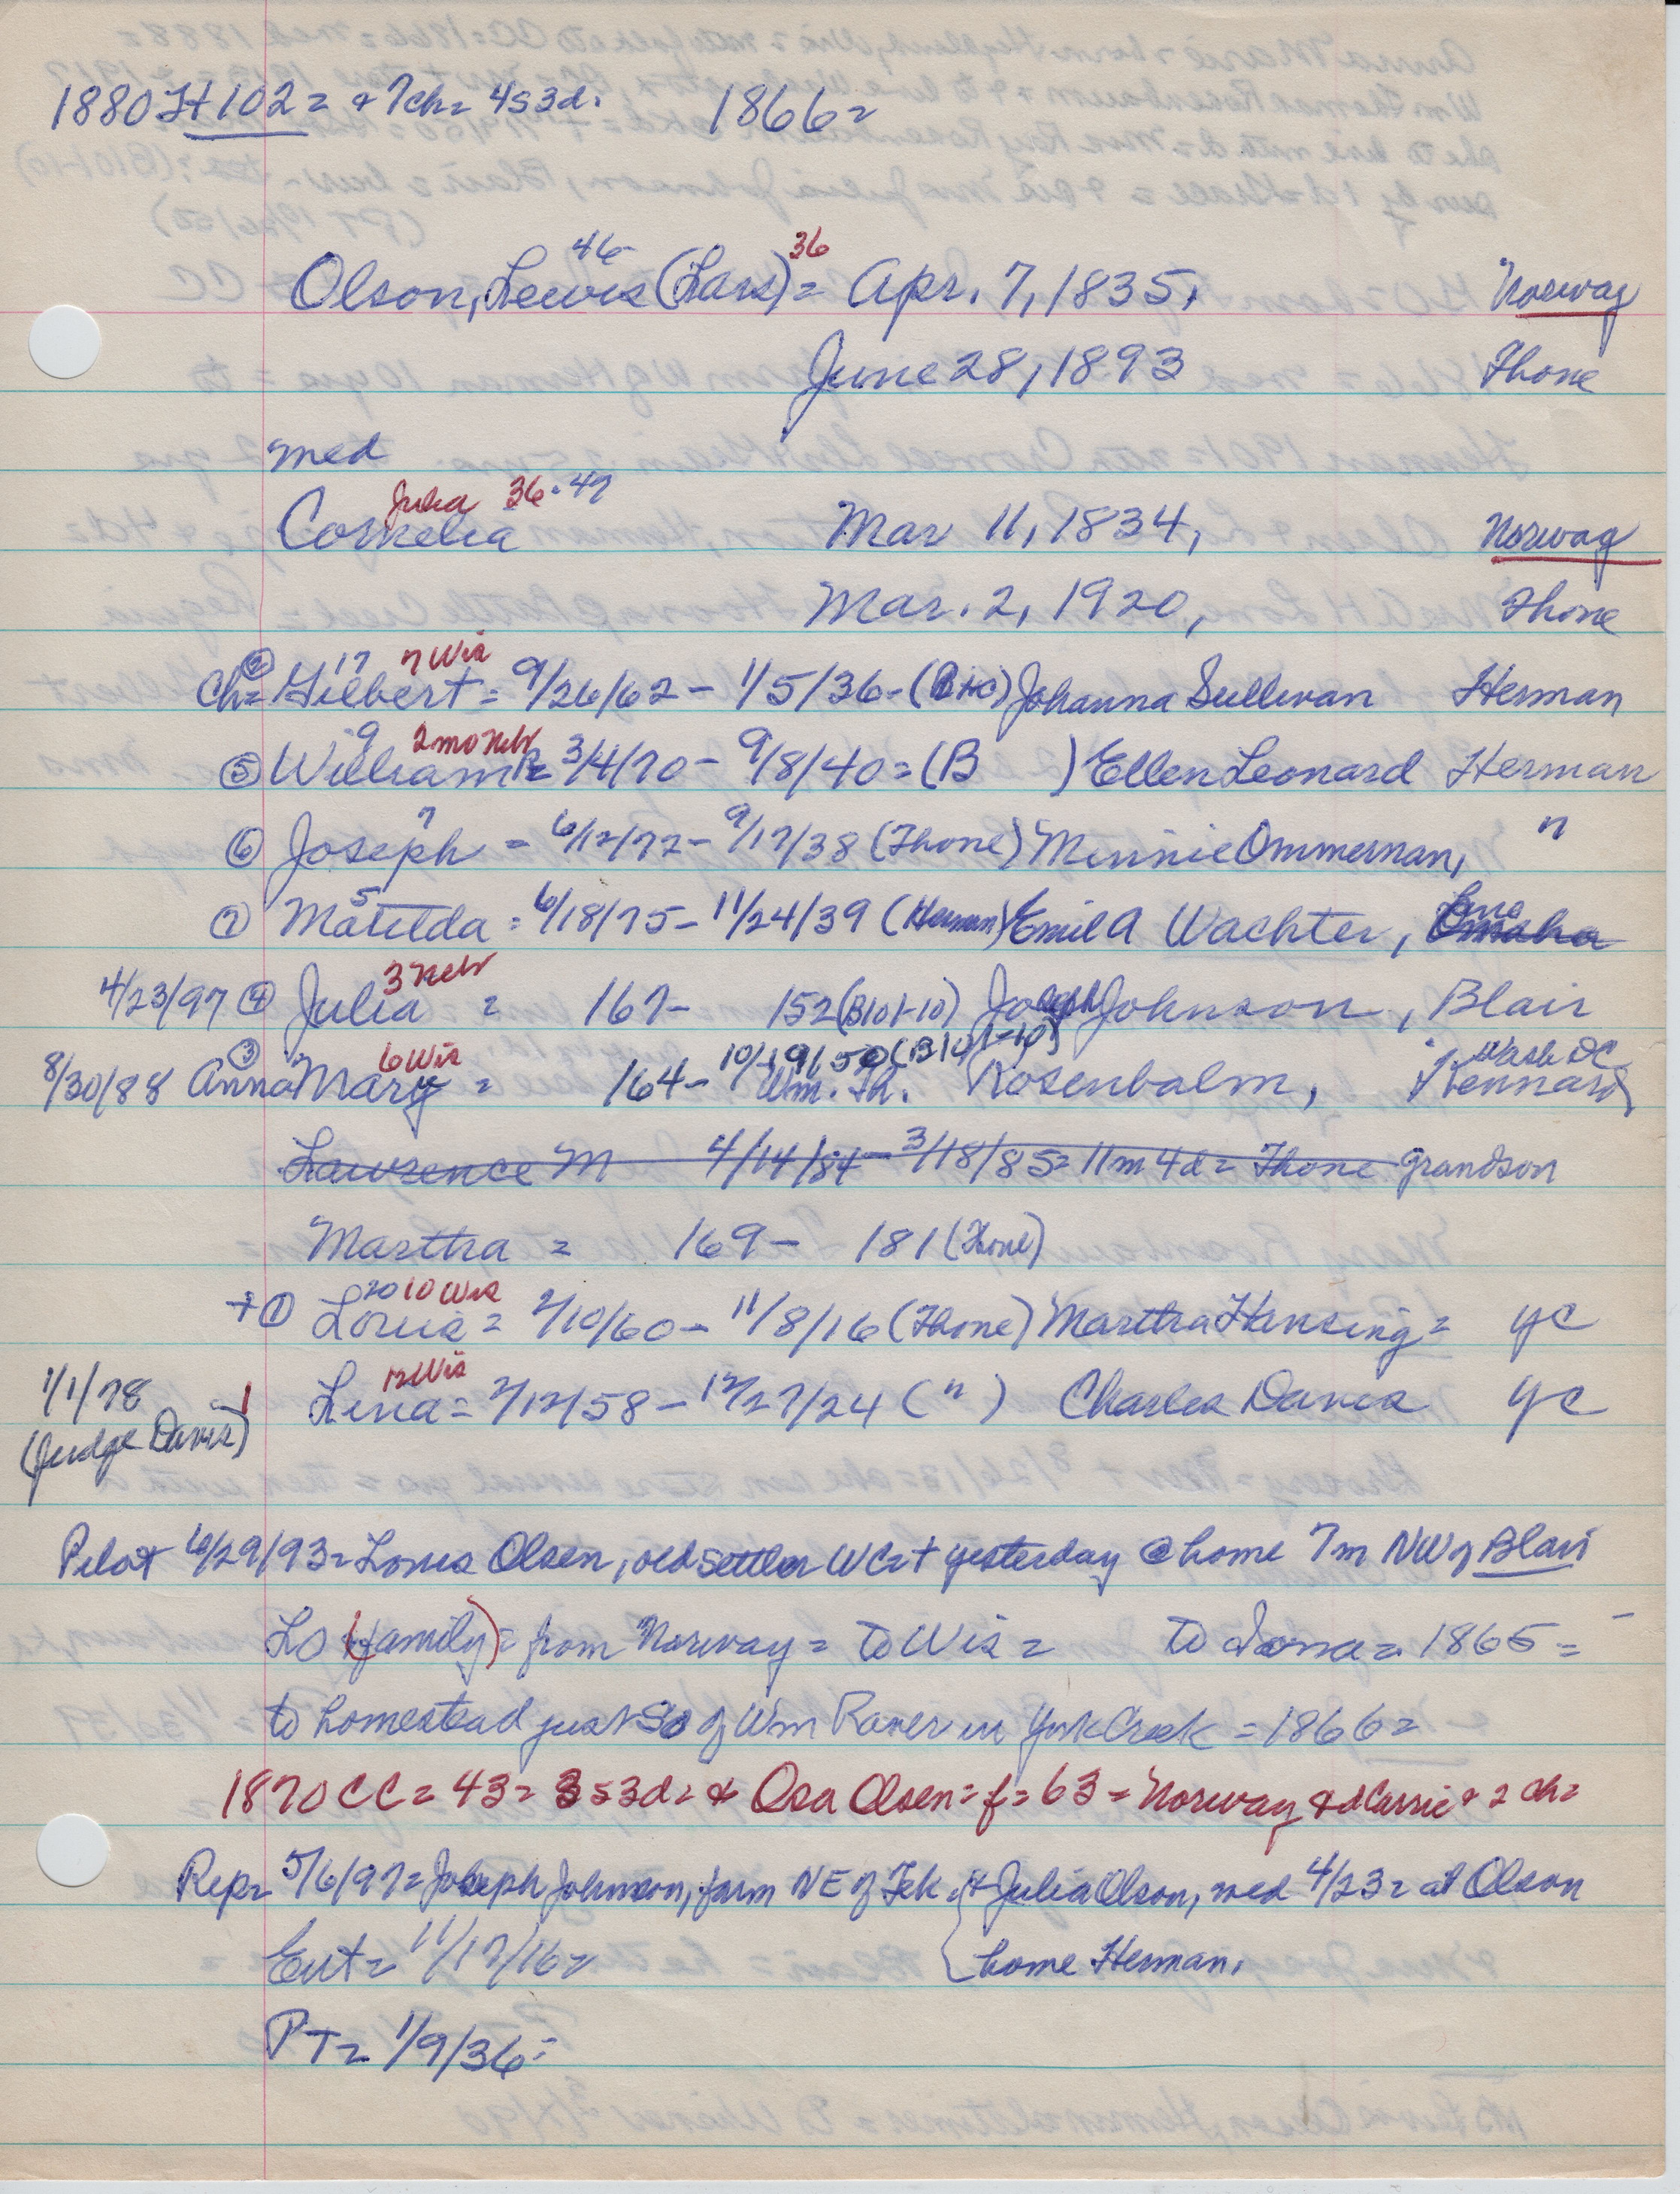 1880 H 102 = + 7ch = 4s 3d. 1866 =
46 36
Olson, Lewis (Lars) = Apr. 7, 1835, Norway
June 28, 1893 Thone
med
Julia 36 - 47
Cornelia Mar 11, 1834, Norway
Mar. 2, 1920, Thone
② 17 7 Wis
Ch = Gilbert = 9/26/62 - 1/5/36 - Johanna Sullivan Herman
9 2 mo Nebr
⑤ William = 3/4/70 - 9/8/40 = (B ) Ellen Leonard Herman
7
⑥ Joseph = 6/12/72 - 9/17/38 (Thone) Minnie Ommerman, "
5
⑦ Matilda = 6/18/75 - 11/24/39 (Herman) Emil A Wachter, Omaha
3 Nebr
4/23/97 ④ Julia = 167 - 152 (B101-10) Joseph Johnson, Blair
③ 6 Wis 10/19/50 (B101-10) Wash DC
8/30/88 Anna Mary = 164 - Wm. Th. Rosenbalm, Kennard
Lawrence M 4/14/84 - 3/18/85 = 11m 4d = Thone grandson
Martha = 169 - 181 (Thone)
20 10 Wis
+ ① Louis = 2/10/60 - 11/8/16 (Thone) Martha Hansing = YC
12 Wis
1/1/78 Lena = 2/12/58 - 12/27/24 ( " ) Charles Davis YC
(Judge Davis)
Pilot 6/29/93 = Louis Olsen, old settler WC = + yesterday @ home 7m NW of Blair
LO (family) = from Norway = to Wis = to Iowa = 1865 =
to homestead just So of Wm Raver in York Creek = 1866 =
1870 CC = 43 = 3s 3d = & Osa Olsen = f = 63 = Norway & d Carrie & 2 ch =
Rep = 5/6/97 = Joseph Johnson, farm NE of Tek. & Julia Olson, med 4/23 = at Olson
home Herman.
Ent = 11/17/16 =
PT = 1/9/36 =